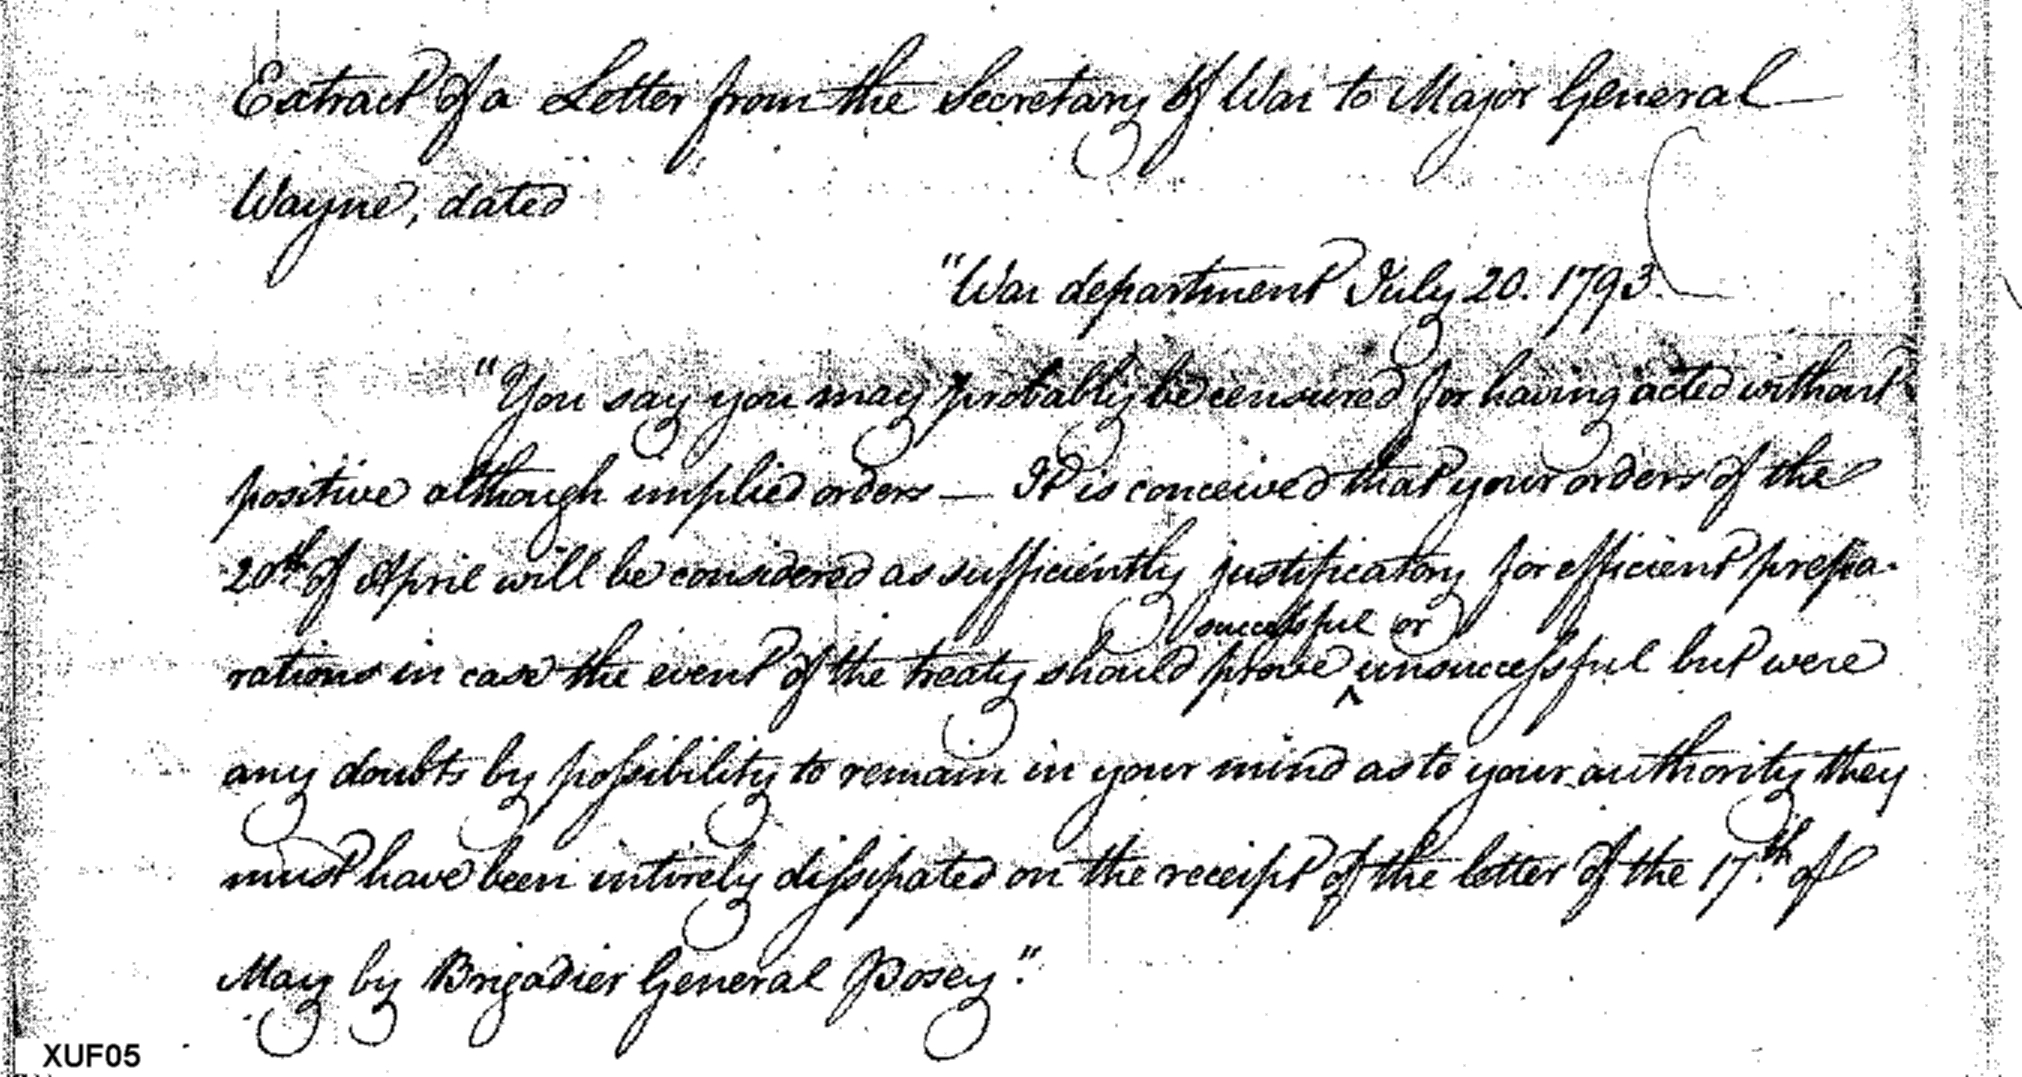 Extract of a Letter from the Secretary of War to Major General
Wayne, dated
"War department July 20. 1793.
"You say you may probably be censured for having acted without
positive although implied orders — It is conceived that your orders of the
20th. of April will be considered as sufficiently justificatory for efficient prepa-
successful or
rations in case the event of the treaty should prove ^ unsuccessful but were
any doubts by possibility to remain in your mind as to your authority they
must have been intirely dissipated on the receipt of the letter of the 17th. of
May by Brigadier General Posey."
XUF05